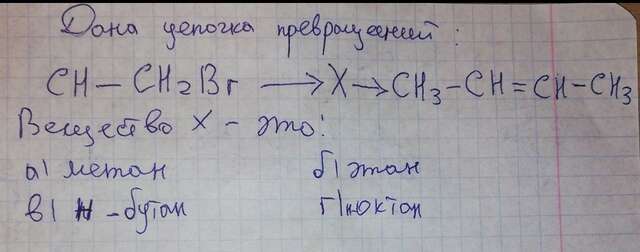 Дана цепочка превращений:
CH – CH₂Br ⟶ X → CH₃ – CH = CH – CH₃
Вещество X – это:
а) метан б) этан
в) н-бутан г) н октан